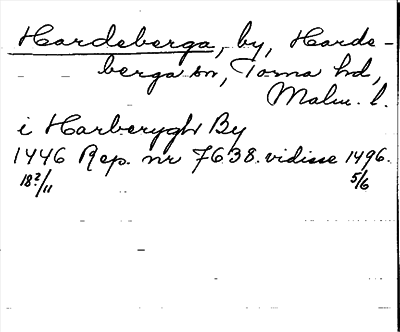 Hardeberga, by, Harde-
berga sn, Torna hd,
Malm. l.
i Harberygh By
1446 Rep. nr 7638. vidisse 1496.
18?/11 5/6